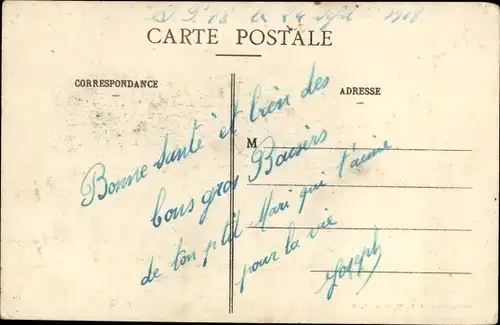 CARTE POSTALE
CORRESPONDANCE
ADRESSE
M
Bonne santé et bien des
bons gros Baisers
de ton p'tit Mari qui t'aime
pour la vie
Joseph